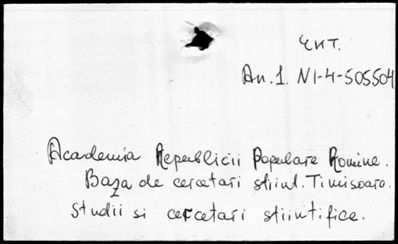 Чит.
An.1. N1-4-505504
Academia Republicii Populare Romine.
Baza de cercetari stiint. Timisoara.
Studii si cercetari stiintifice.